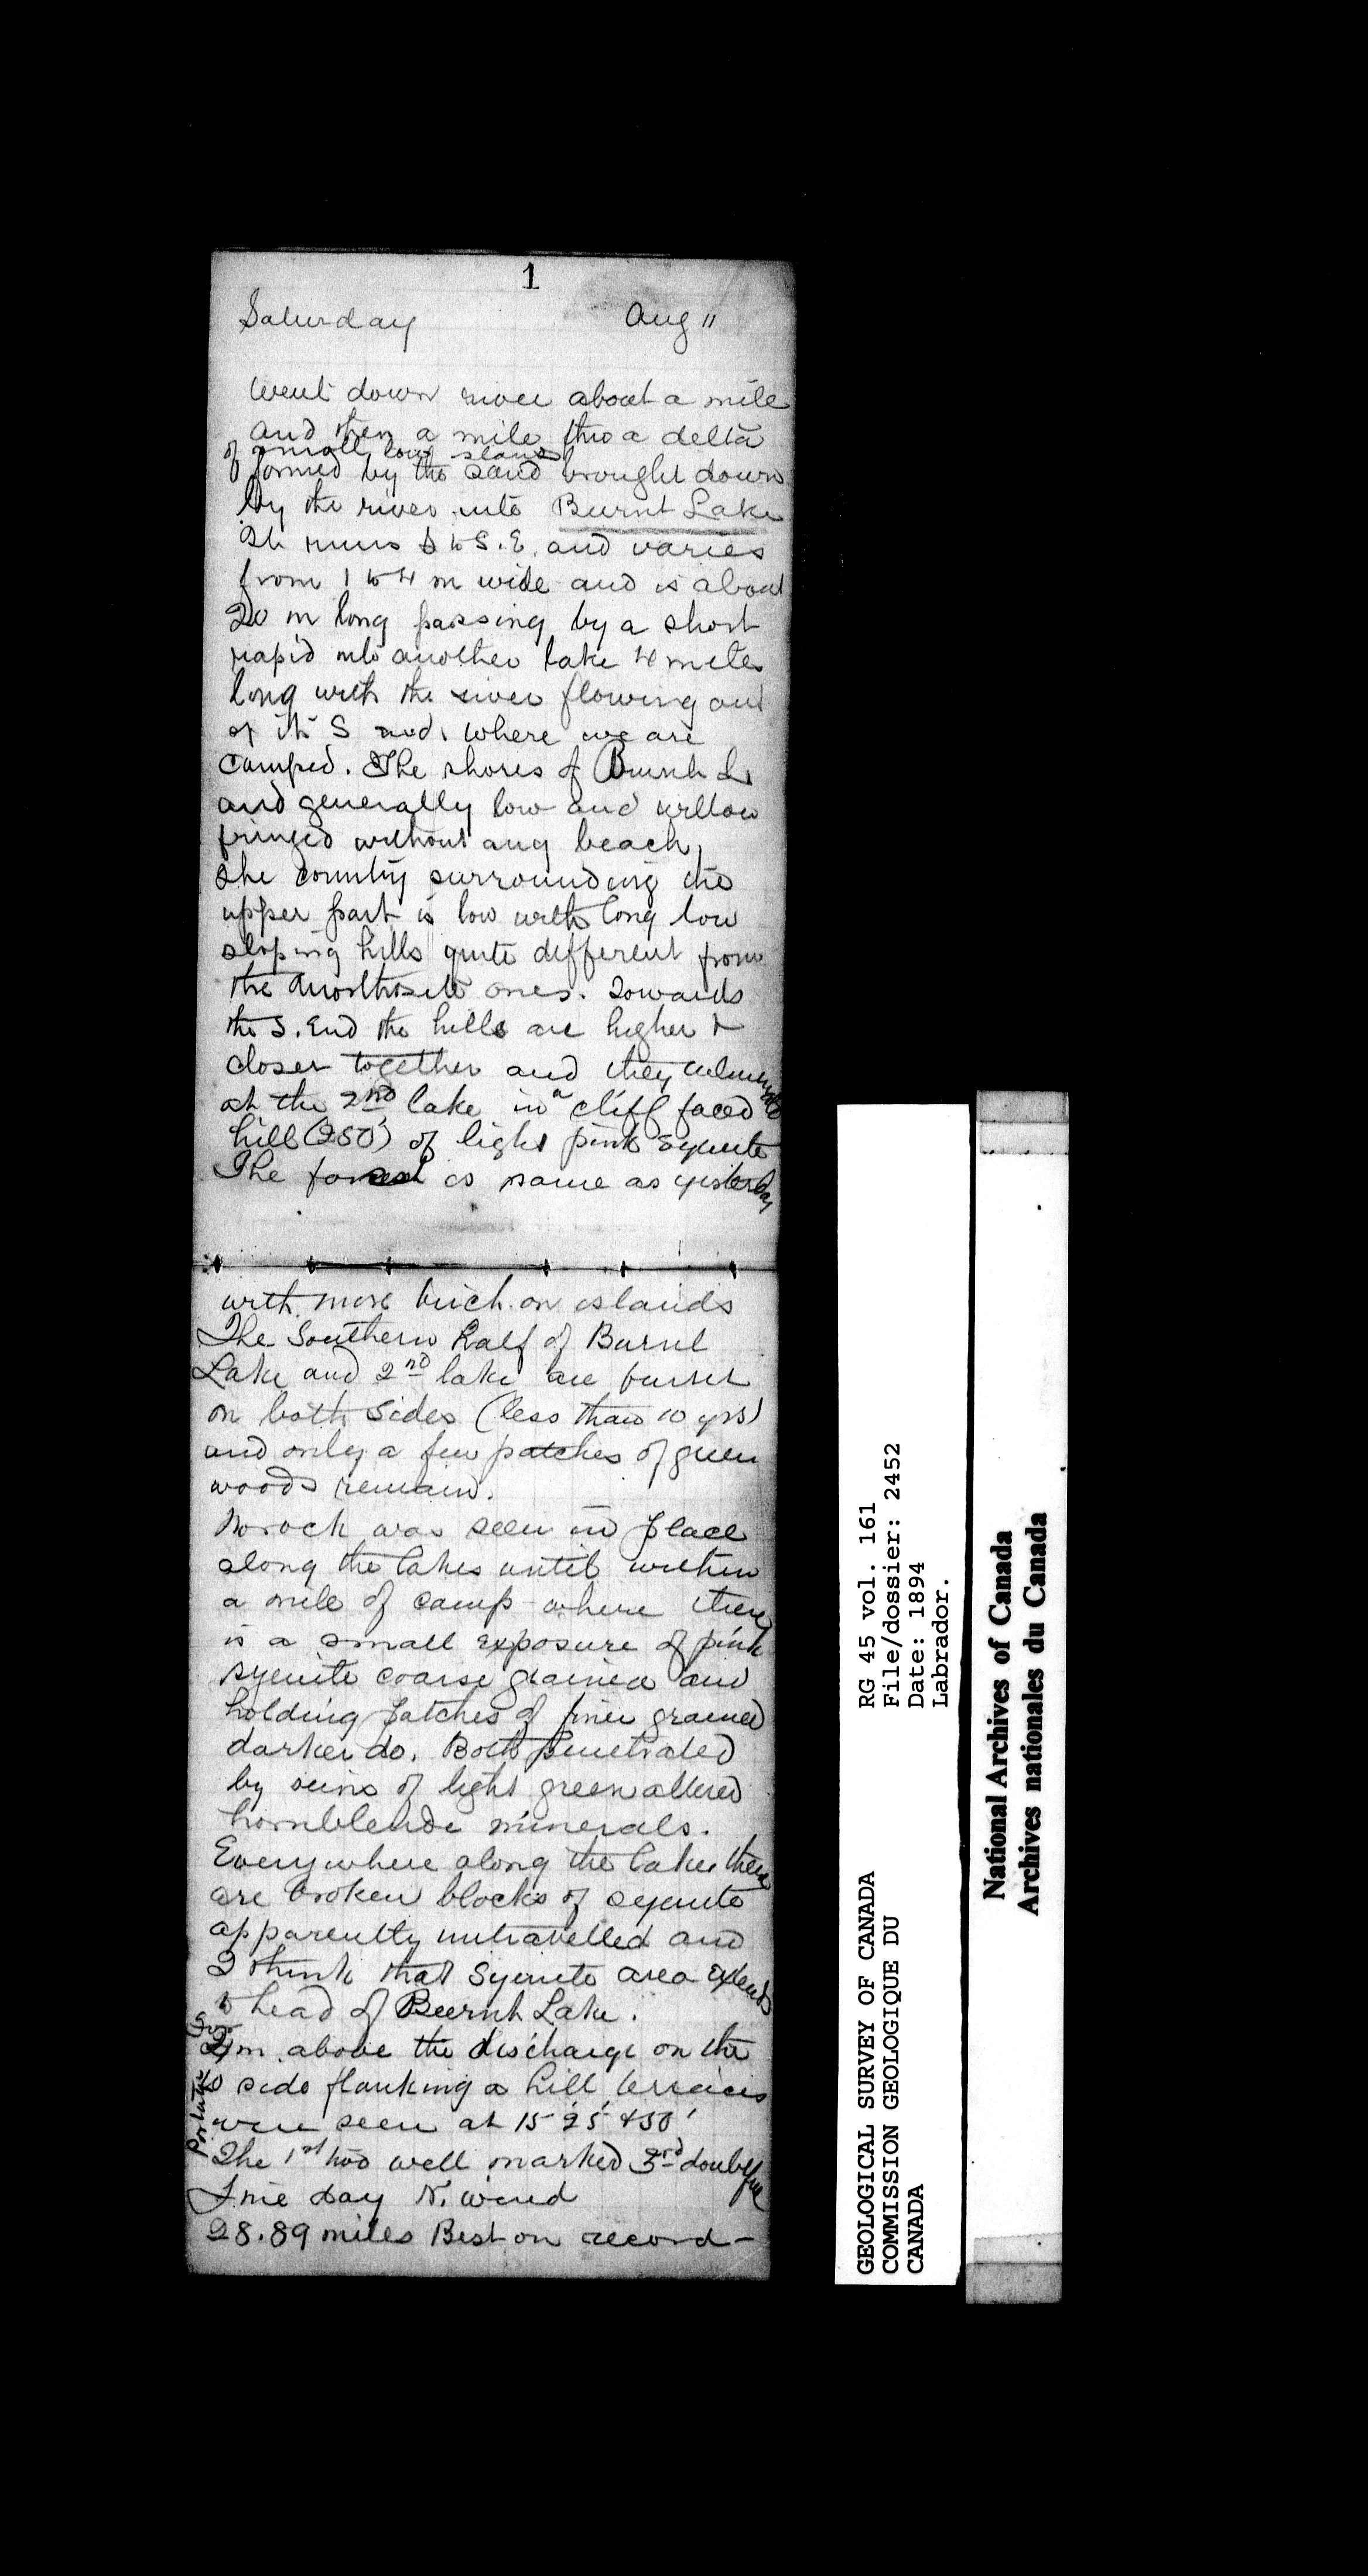 1
Saturday Aug 11
Went down river about a mile
and then a mile thro a delta
of small low islands
formed by the sand brought down
by the river into Burnt Lake
It runs S to S.E. and varies
from 1 to 4 m wide and is about
20 m long passing by a short
rapid into another lake 4 miles
long with the river flowing out
of its S end, where we are
camped. The shores of Burnt L.
are generally low and willow
fringed without any beach,
The country surrounding the
upper part is low with long low
sloping hills quite different from
the Anorthosite ones. Towards
the S. End the hills are higher &
closer together and they culminate
at the 2nd lake in a cliff faced
hill (250') of light pink Syenite
The forest is same as yesterday
with more birch on islands
The Southern half of Burnt
Lake and 2nd lake are burnt
on both sides (less than 10 yrs)
and only a few patches of green
woods remain.
No rock was seen in place
along the lakes until within
a mile of camp where there
is a small exposure of pink
syenite coarse grained and
holding patches of finer grained
darker do. Both penetrated
by veins of light green altered
hornblende minerals.
Everywhere along the lakes there
are broken blocks of syenite
apparently untravelled and
I think that Syenite area extends
to head of Burnt Lake.
2 m. above the discharge on the
side flanking a hill terraces
were seen at 15' 25' & 50'
The 1st two well marked 3rd doubtful
Fine day N. wind
28.89 miles Best on record –
GEOLOGICAL SURVEY OF CANADA
COMMISSION GEOLOGIQUE DU
CANADA
RG 45 vol. 161
File/dossier: 2452
Date: 1894
Labrador.
National Archives of Canada
Archives nationales du Canada